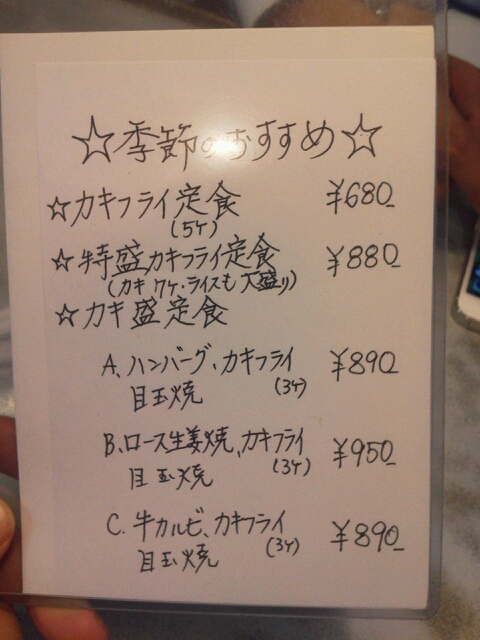 ☆季節のおすすめ☆
☆カキフライ定食 ¥680
(5ケ)
☆特盛カキフライ定食 ¥880
(カキ7ケ・ライスも大盛り)
☆カキ盛定食
A、ハンバーグ、カキフライ ¥890
目玉焼 (3ケ)
B、ロース生姜焼、カキフライ ¥950
目玉焼 (3ケ)
C、牛カルビ、カキフライ ¥890
目玉焼 (3ケ)